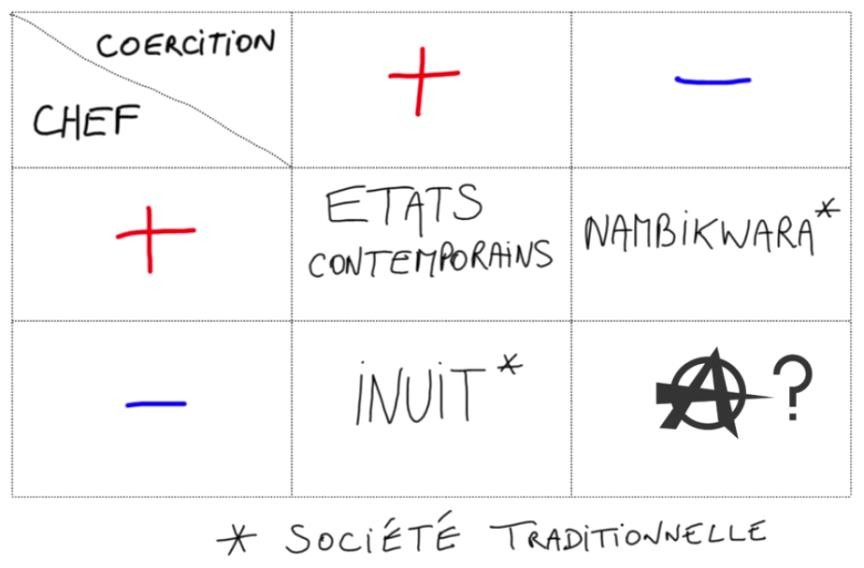 COERCITION
CHEF
+
—
+
ETATS
CONTEMPORAINS
NAMBIKWARA*
—
INUIT*
A?
* SOCIÉTÉ TRADITIONNELLE